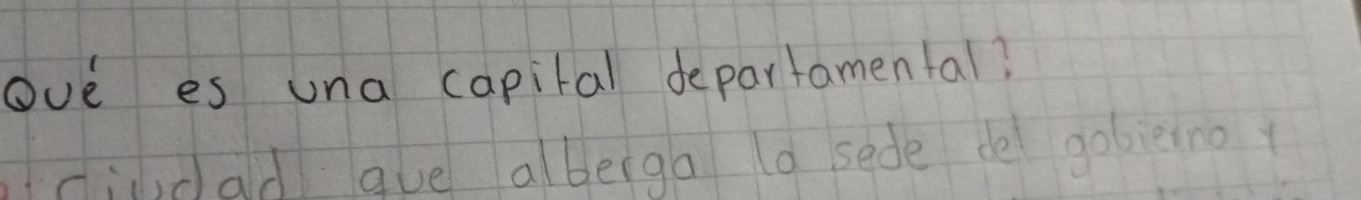 Qué es una capital departamental?
ciudad que alberga la sede del gobierno y